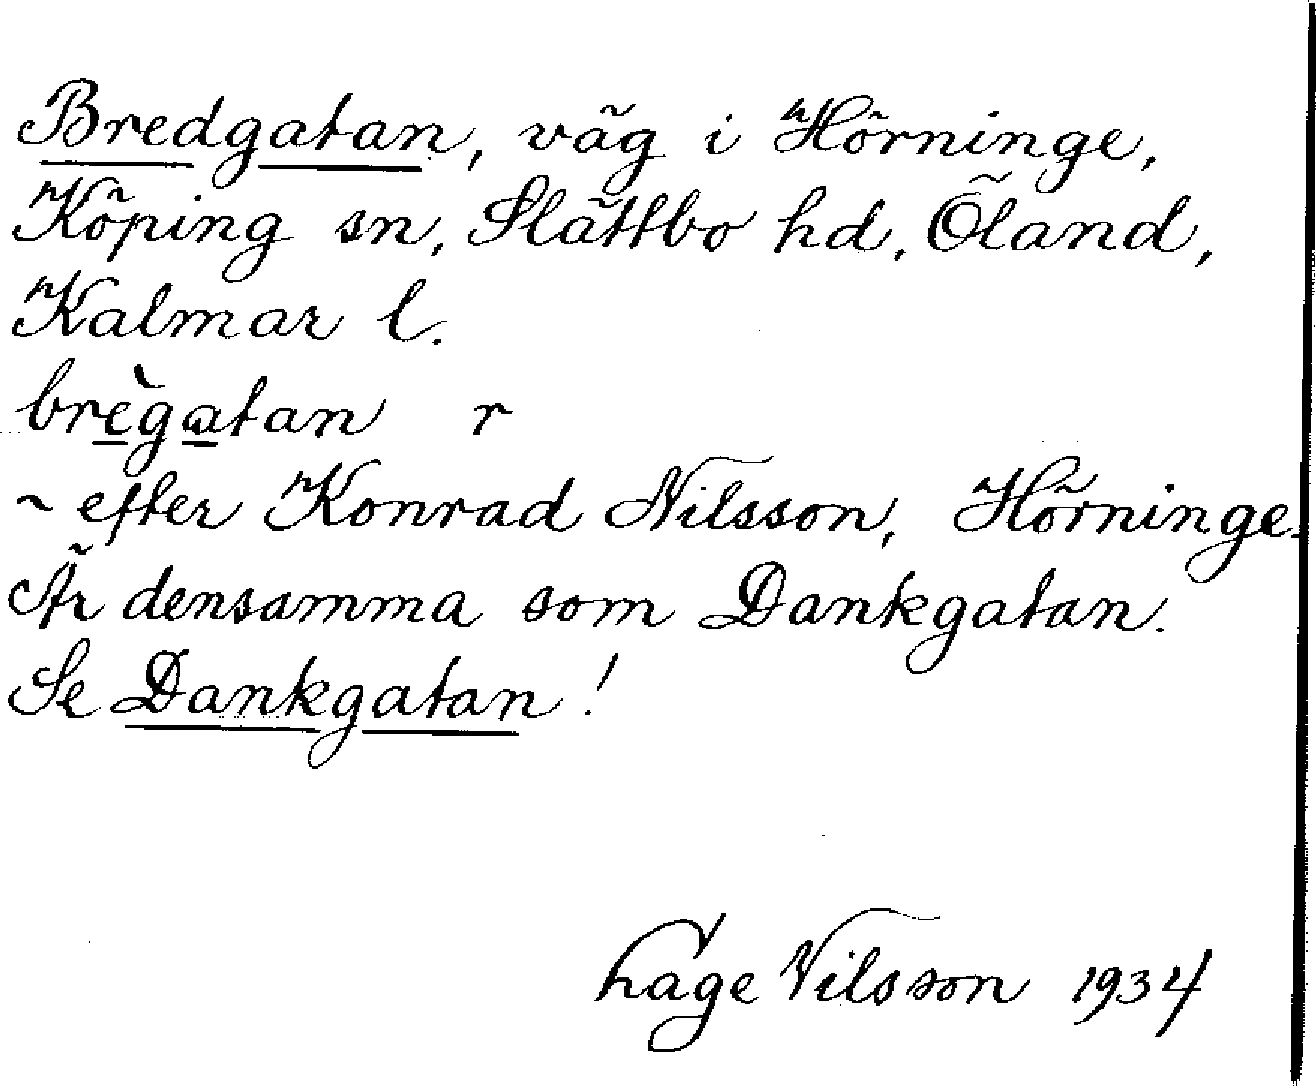 Bredgatan, väg i Hörninge,
Köping sn, Slättbo hd, Öland,
Kalmar l.
brègatan r
~ efter Konrad Nilsson, Hörninge.
Är densamma som Dankgatan.
Se Dankgatan!
Hage Nilsson 1934